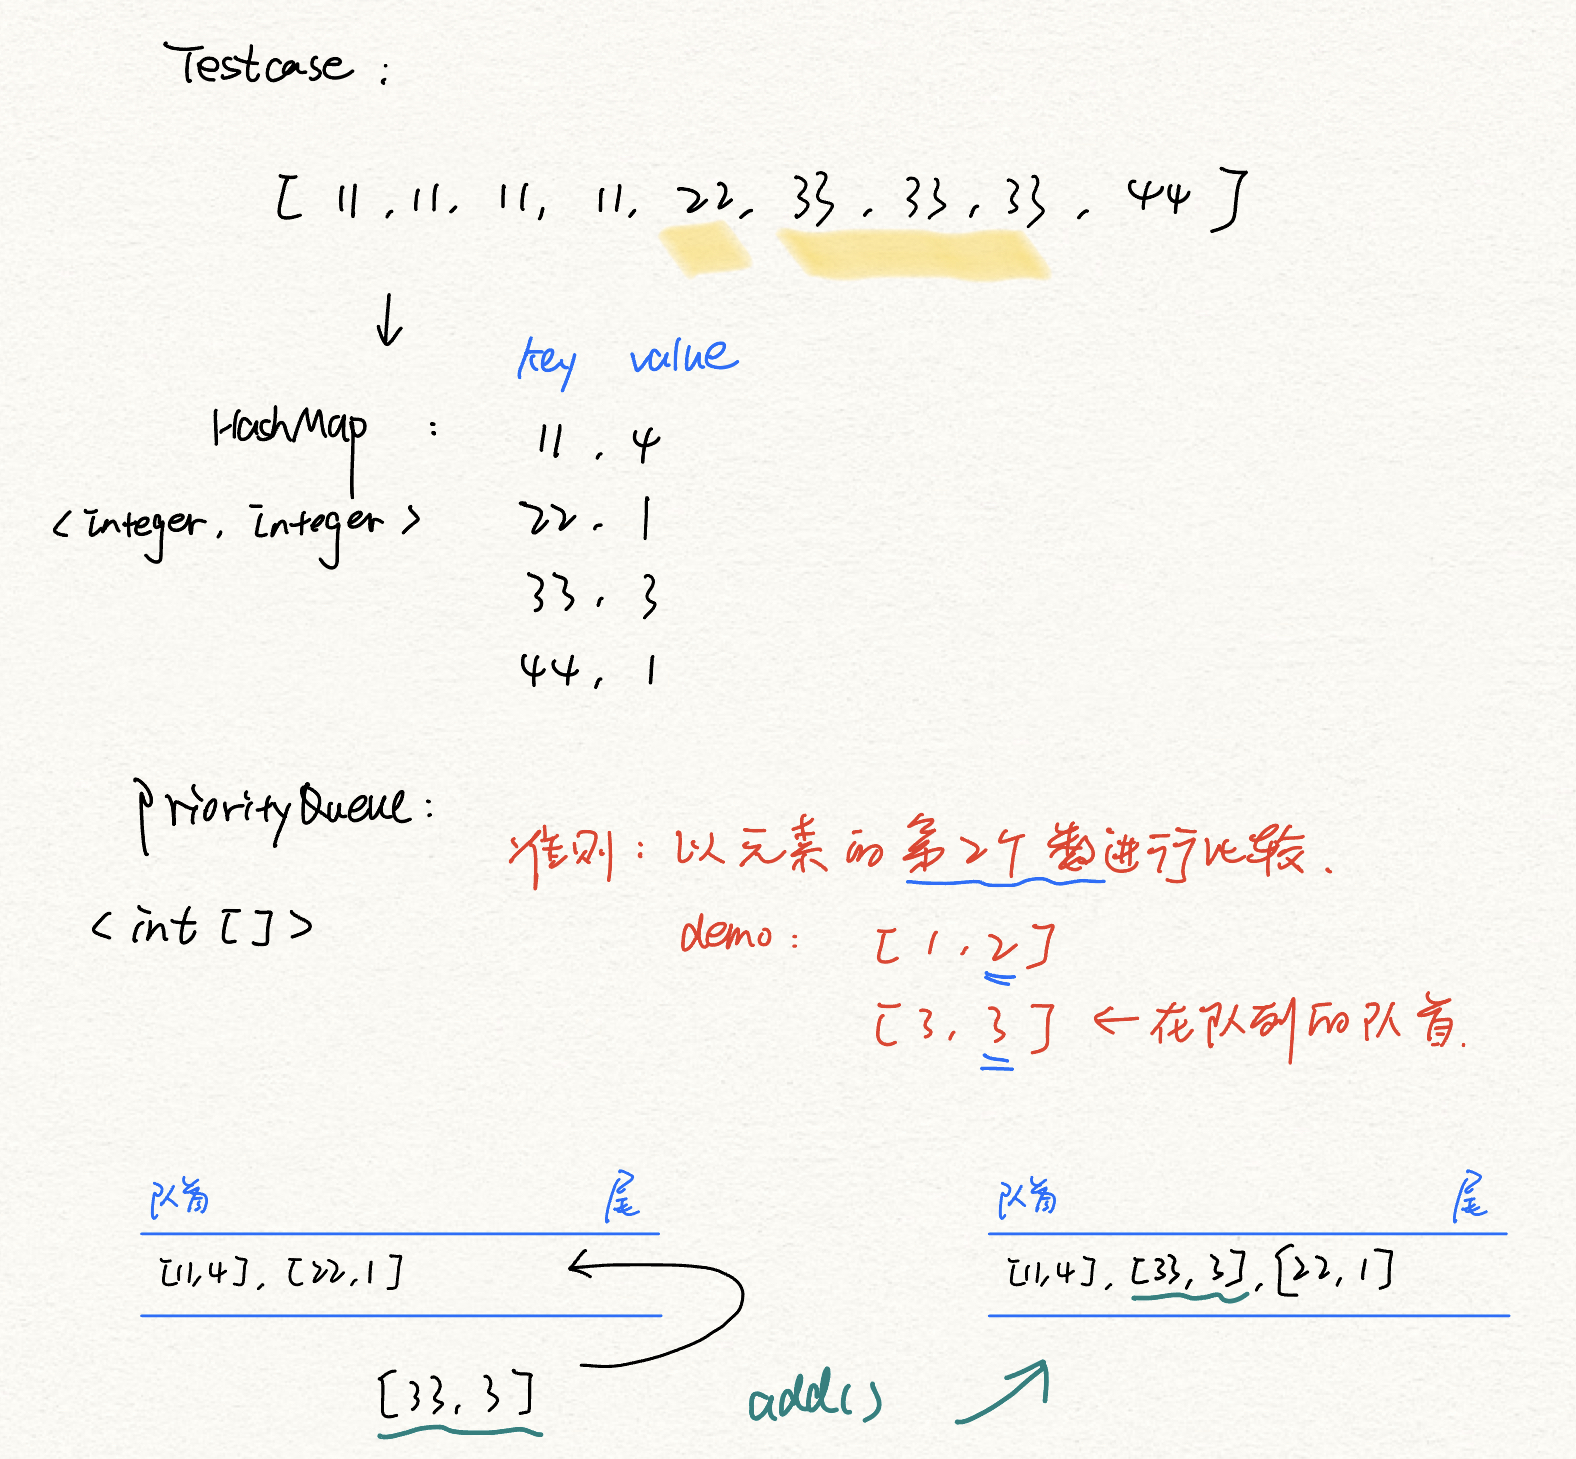 Testcase :
[ 11, 11, 11, 11, 22, 33, 33, 33, 44 ]
key value
HashMap : 11, 4
<integer, integer> 22, 1
33, 3
44, 1
PriorityQueue:
准则:以元素的第2个数进行比较.
<int []>
demo: [ 1, 2 ]
[ 3, 3 ] ← 在队列的队首.
队首 尾
[11,4], [22,1]
[33, 3]
add()
队首 尾
[11,4], [33, 3], [22, 1]